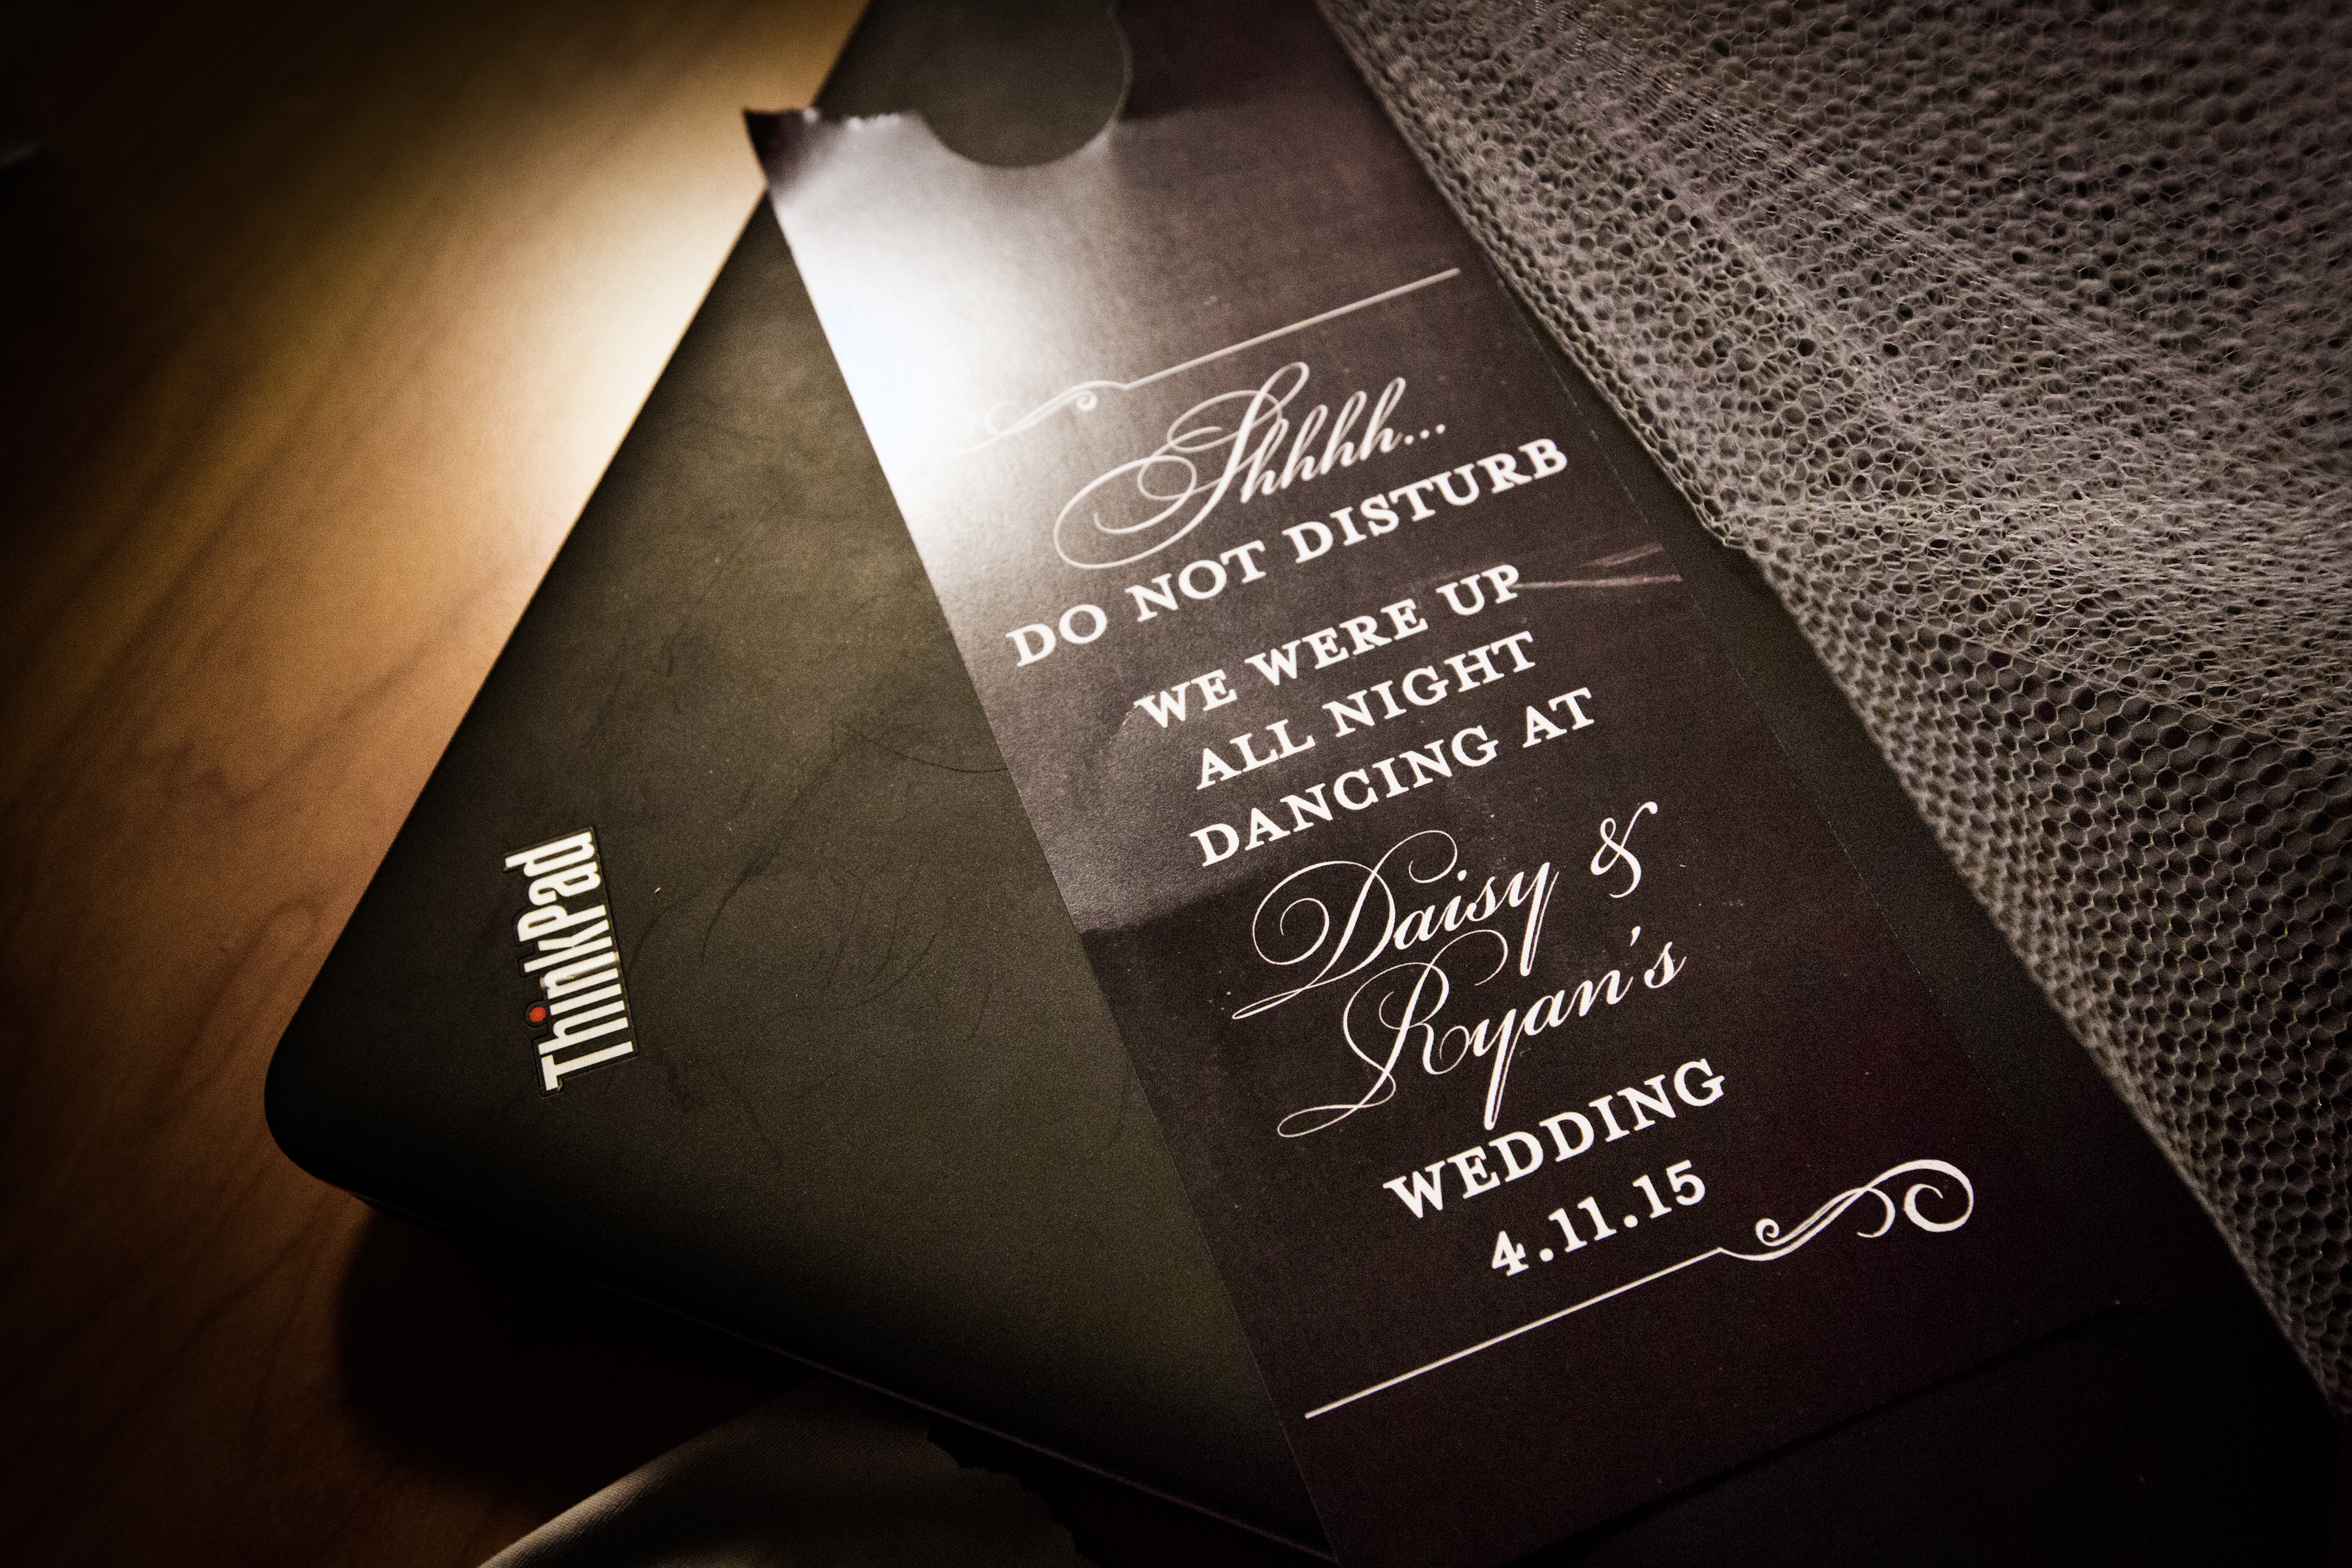 Shhhh...
DO NOT DISTURB
WE WERE UP
ALL NIGHT
DANCING AT
Daisy &
Ryan's
WEDDING
4.11.15
ThinkPad